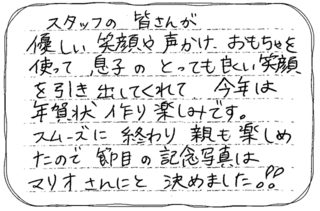 スタッフの 皆さんが
優しい 笑顔や 声かけ、おもちゃを
使って 息子の とっても良い笑顔
を引き出してくれて 今年は
年賀状 作り 楽しみです。
スムーズに 終わり 親も楽しめ
たので 節目の記念写真は
マリオ さんにと 決めました!!